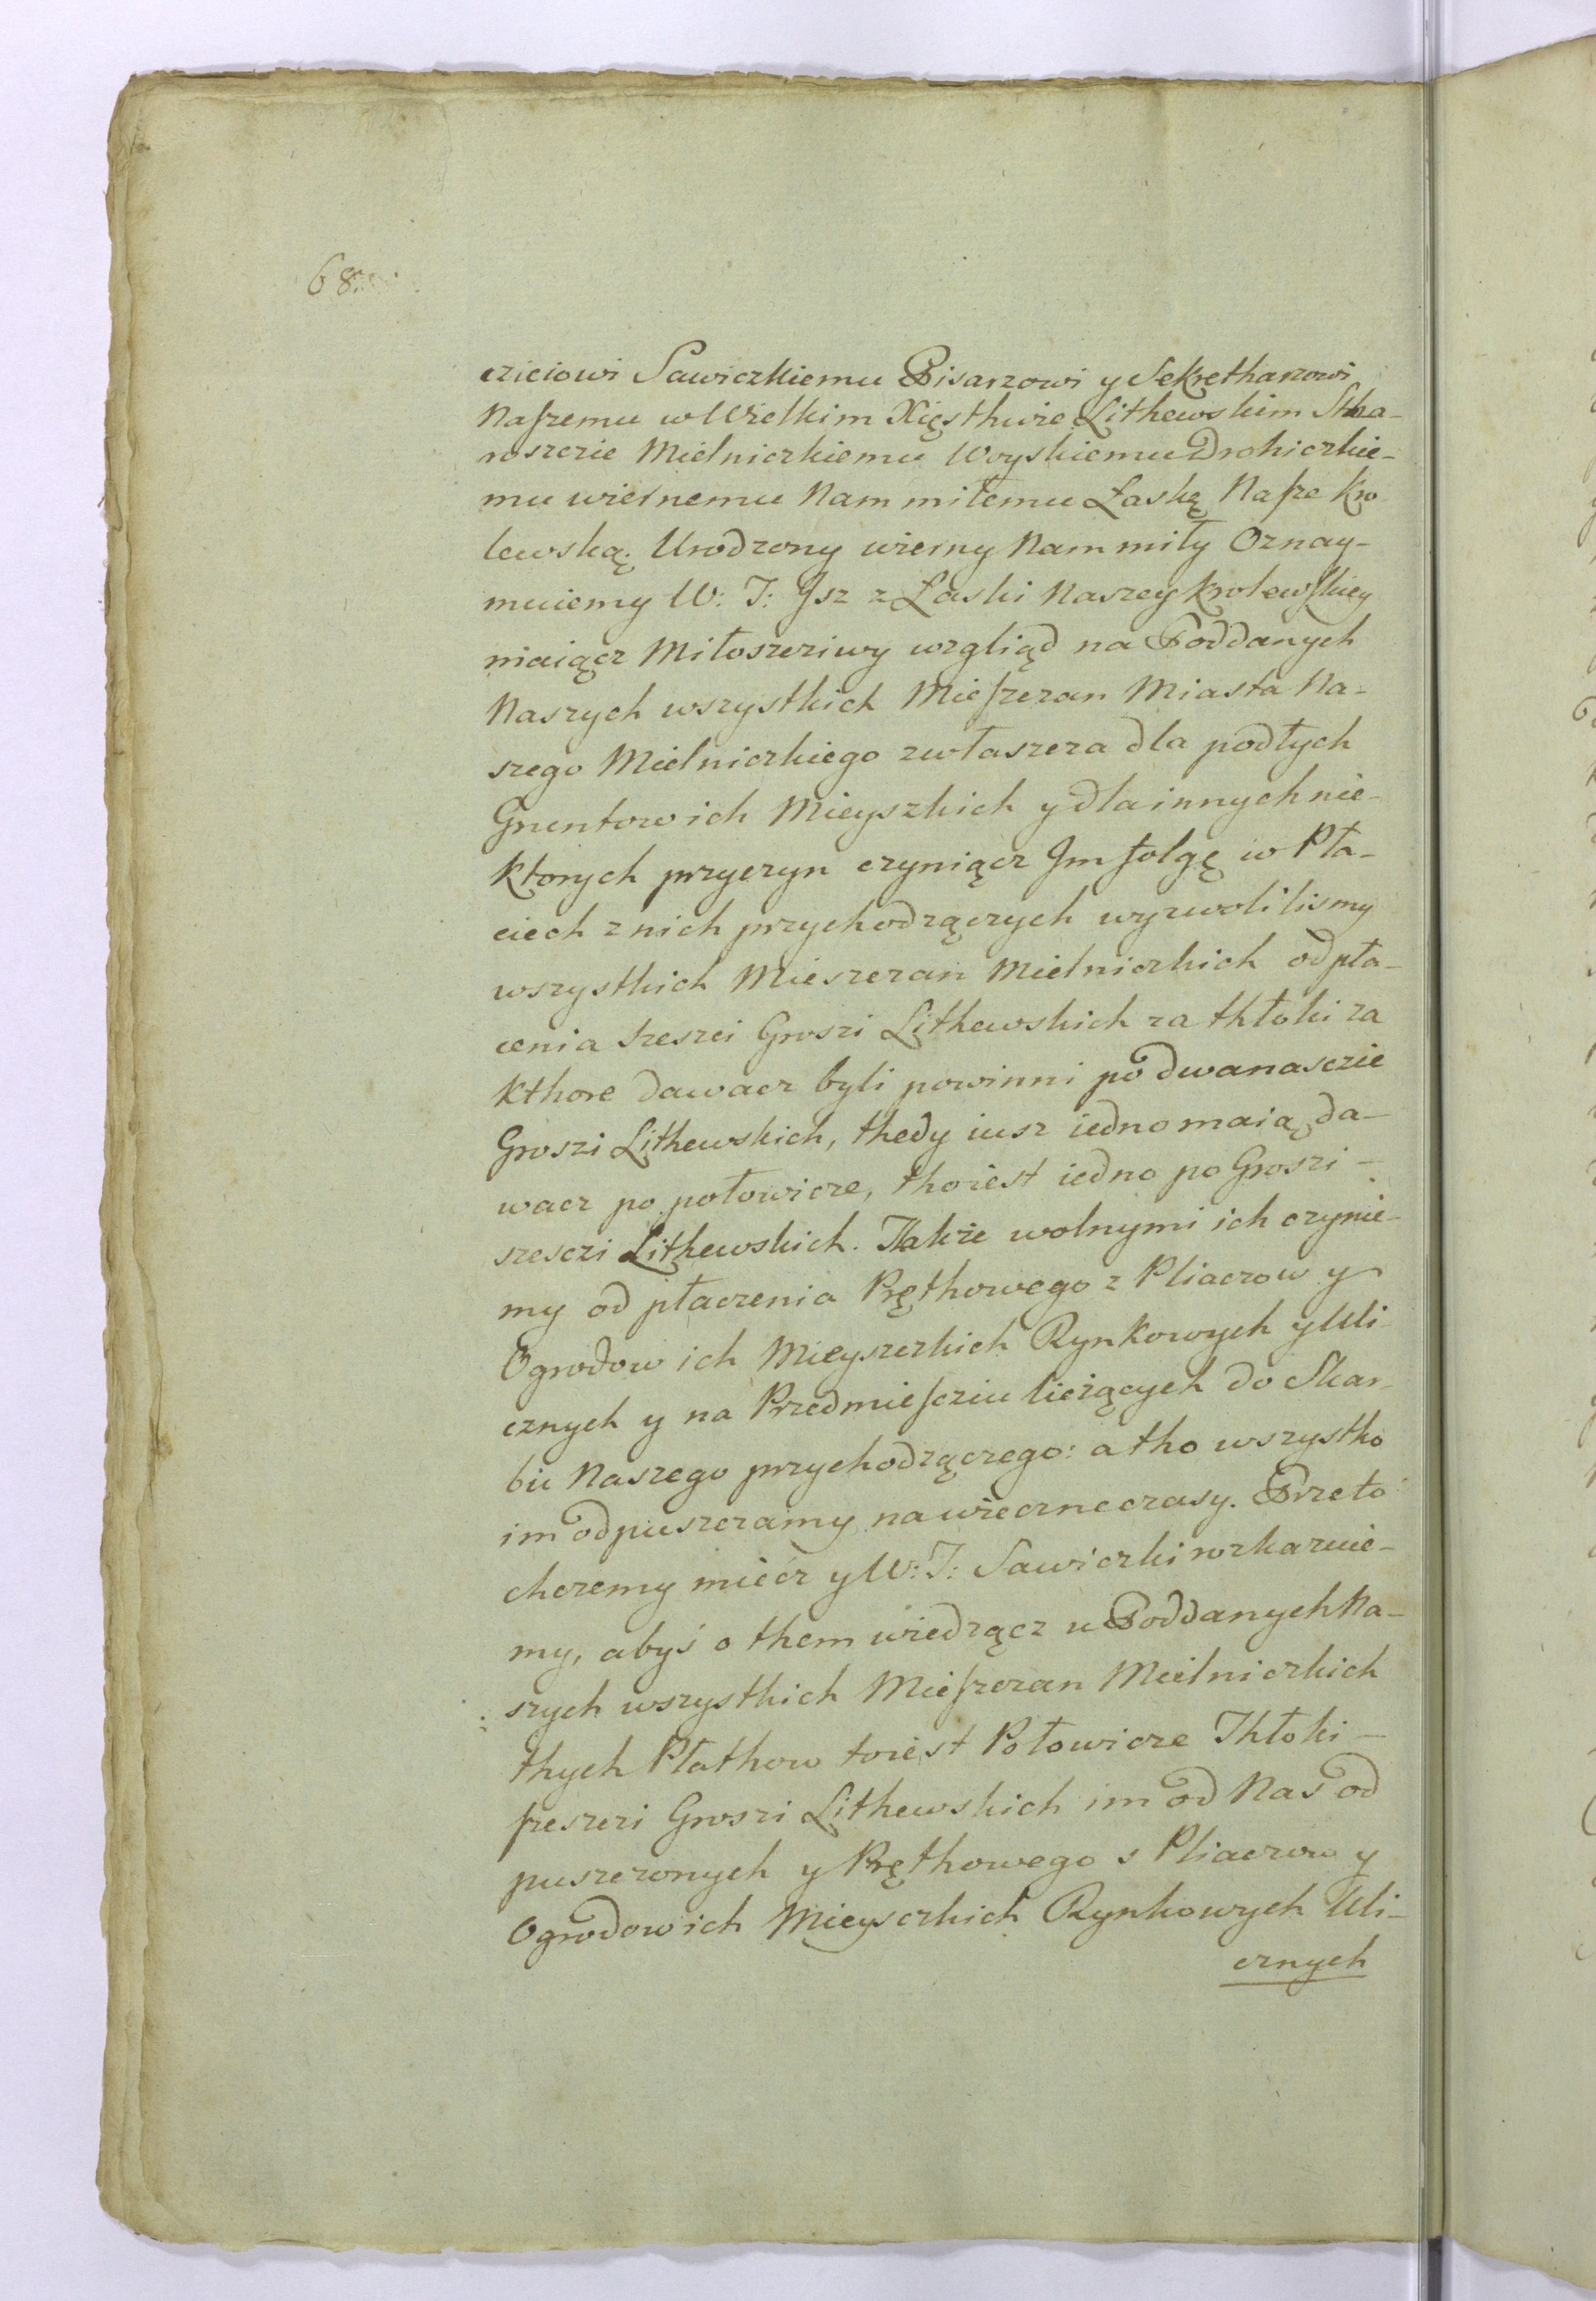 68.
cziciowi Sawiczkiemu Pisarzowi y Sekretharzowi
Naszemu w Wielkim Xięsthwie Lithewskim Stha-
roszczie Mielniczkiemu Woyskiemu Drohiczkie-
mu wiernemu Nam miłemu Łaskę Nasze kro
lewską. Urodzony wierny Nam miły Oznay-
muiemy W: T: Jsz z Łaski Naszey krolewskiey
maiącz Miłoszcziwy wzgliąd na Poddanych
Naszych wszystkich Mieszczan Miasta Na-
szego Mielniczkiego zwłaszcza dla podłych
Gruntow ich Mieyszkich y dla innych nie-
ktorych przyczyn czyniącz Jm folgę w Pła-
ciech z nich przychodzączych wyzwolilismy
wszystkich Mieszczan Mielniczkich od pła-
cenia szeszci Groszi Lithewskich za thłoki za
kthore dawacz byli powinni po dwanasczie
Groszi Lithewskich, thedy iusz iedno maią da-
wacz po połowicze, tho iest iedno po Groszi -
szesczi Lithewskich. Thakże wolnymi ich czynie-
my od płaczenia Pręthowego z Pliaczow y
Ogrodow ich Mieyszczkich Rynkowych y Uli-
cznych y na Przedmiesciu lieżących do Skar-
bu Naszego przychodzączego: a tho wszystko
im odpuszczamy na wieczne czasy. Przeto
chczemy miecz y W: T: Sawiczki rozkazuie-
my, abyś o them wiedzącz u Poddanych Na-
szych wszystkich Mieszczan Mielniczkich
thych Płathow to iest Połowicze Thłoki -
szeszczi Groszi Lithewskich im od Nas od
puszczonych y Pręthowego s Pliaczow y
Ogrodow ich Mieysczkich Rynkowych Uli-
cznych